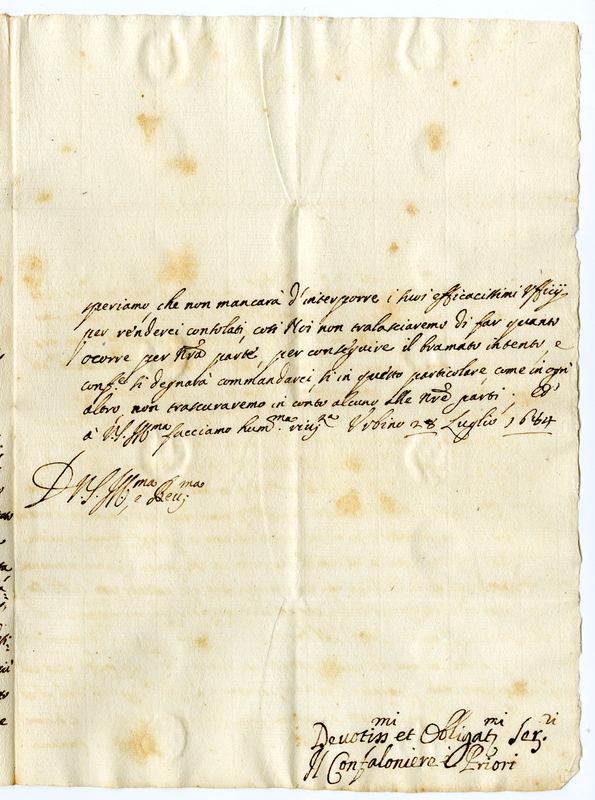 speriamo, che non mancarà d'interporre i suoi efficacissimi Vfficij
per renderci consolati, così Noi non tralasciaremo di far quanto
ocorre per Nr̃a parte, per conseguire il bramato intento, e
se si degnarà commandarci si in questo particolare, come in ogni
altro, non trascuraremo in conto alcuno alle Nr̃e parti; Et
à V.S. Ill.ma facciamo hum.ma riu.za Vrbino 28 Luglio 1684
D V.S. Ill.ma e Reu.ma
Deuotiss.mi et Obligat.mi Ser.ri
Il Confaloniere e Priori